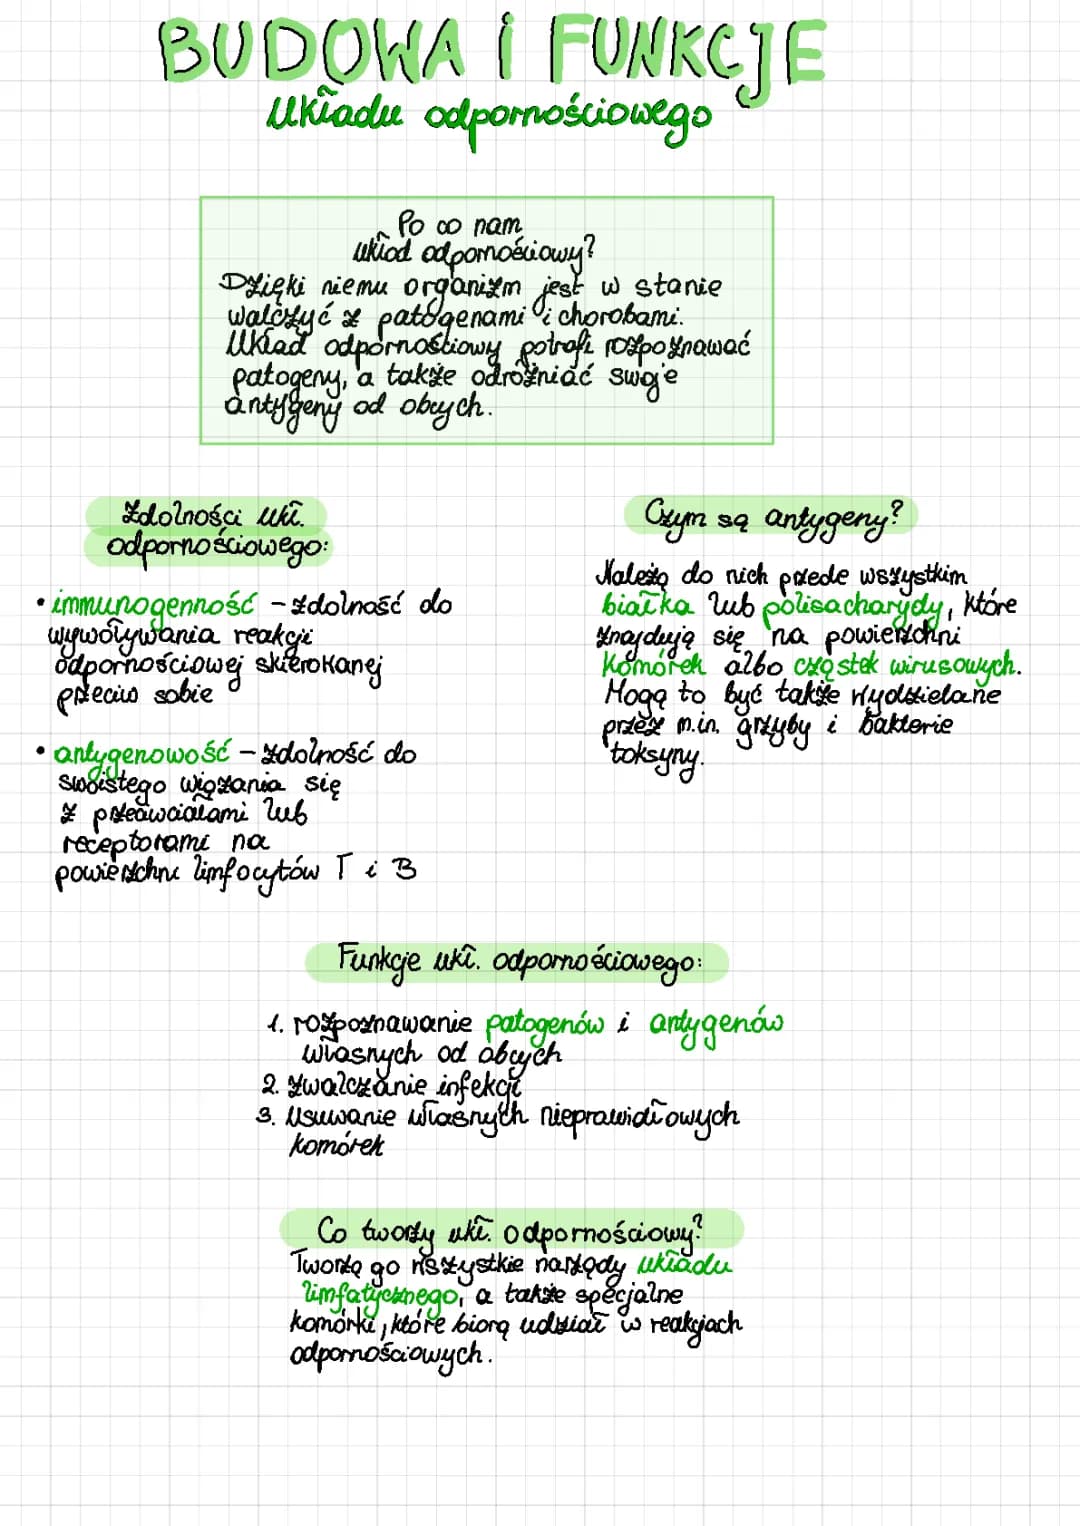 BUDOWA i FUNKCJE
Układu odpornościowego
Po co nam
układ odpornościowy?
Dzięki niemu organizm jest w stanie
walczyć z patogenami i chorobami.
Układ odpornościowy potrafi rozpoznawać
patogeny, a także odróżniać swoje
antygeny od obcych.
Zdolności ukł.
odpornościowego:
• immunogenność - zdolność do
wywoływania reakcji
odpornościowej skierowanej
przeciw sobie
• antygenowość - zdolność do
swoistego wiązania się
z przeciwciałami lub
receptorami na
powierzchni limfocytów T i B
Czym są antygeny?
Należą do nich przede wszystkim
białka lub polisacharydy, które
znajdują się na powierzchni
komórek albo cząstek wirusowych.
Mogą to być także wydzielane
przez m.in. grzyby i bakterie
toksyny.
Funkcje ukł. odpornościowego:
1. rozpoznawanie patogenów i antygenów
własnych od obcych
2. zwalczanie infekcji
3. Usuwanie własnych nieprawidłowych
komórek
Co tworzy ukł. odpornościowy?
Tworzą go wszystkie narządy układu
limfatycznego, a także specjalne
komórki, które biorą udział w reakcjach
odpornościowych.